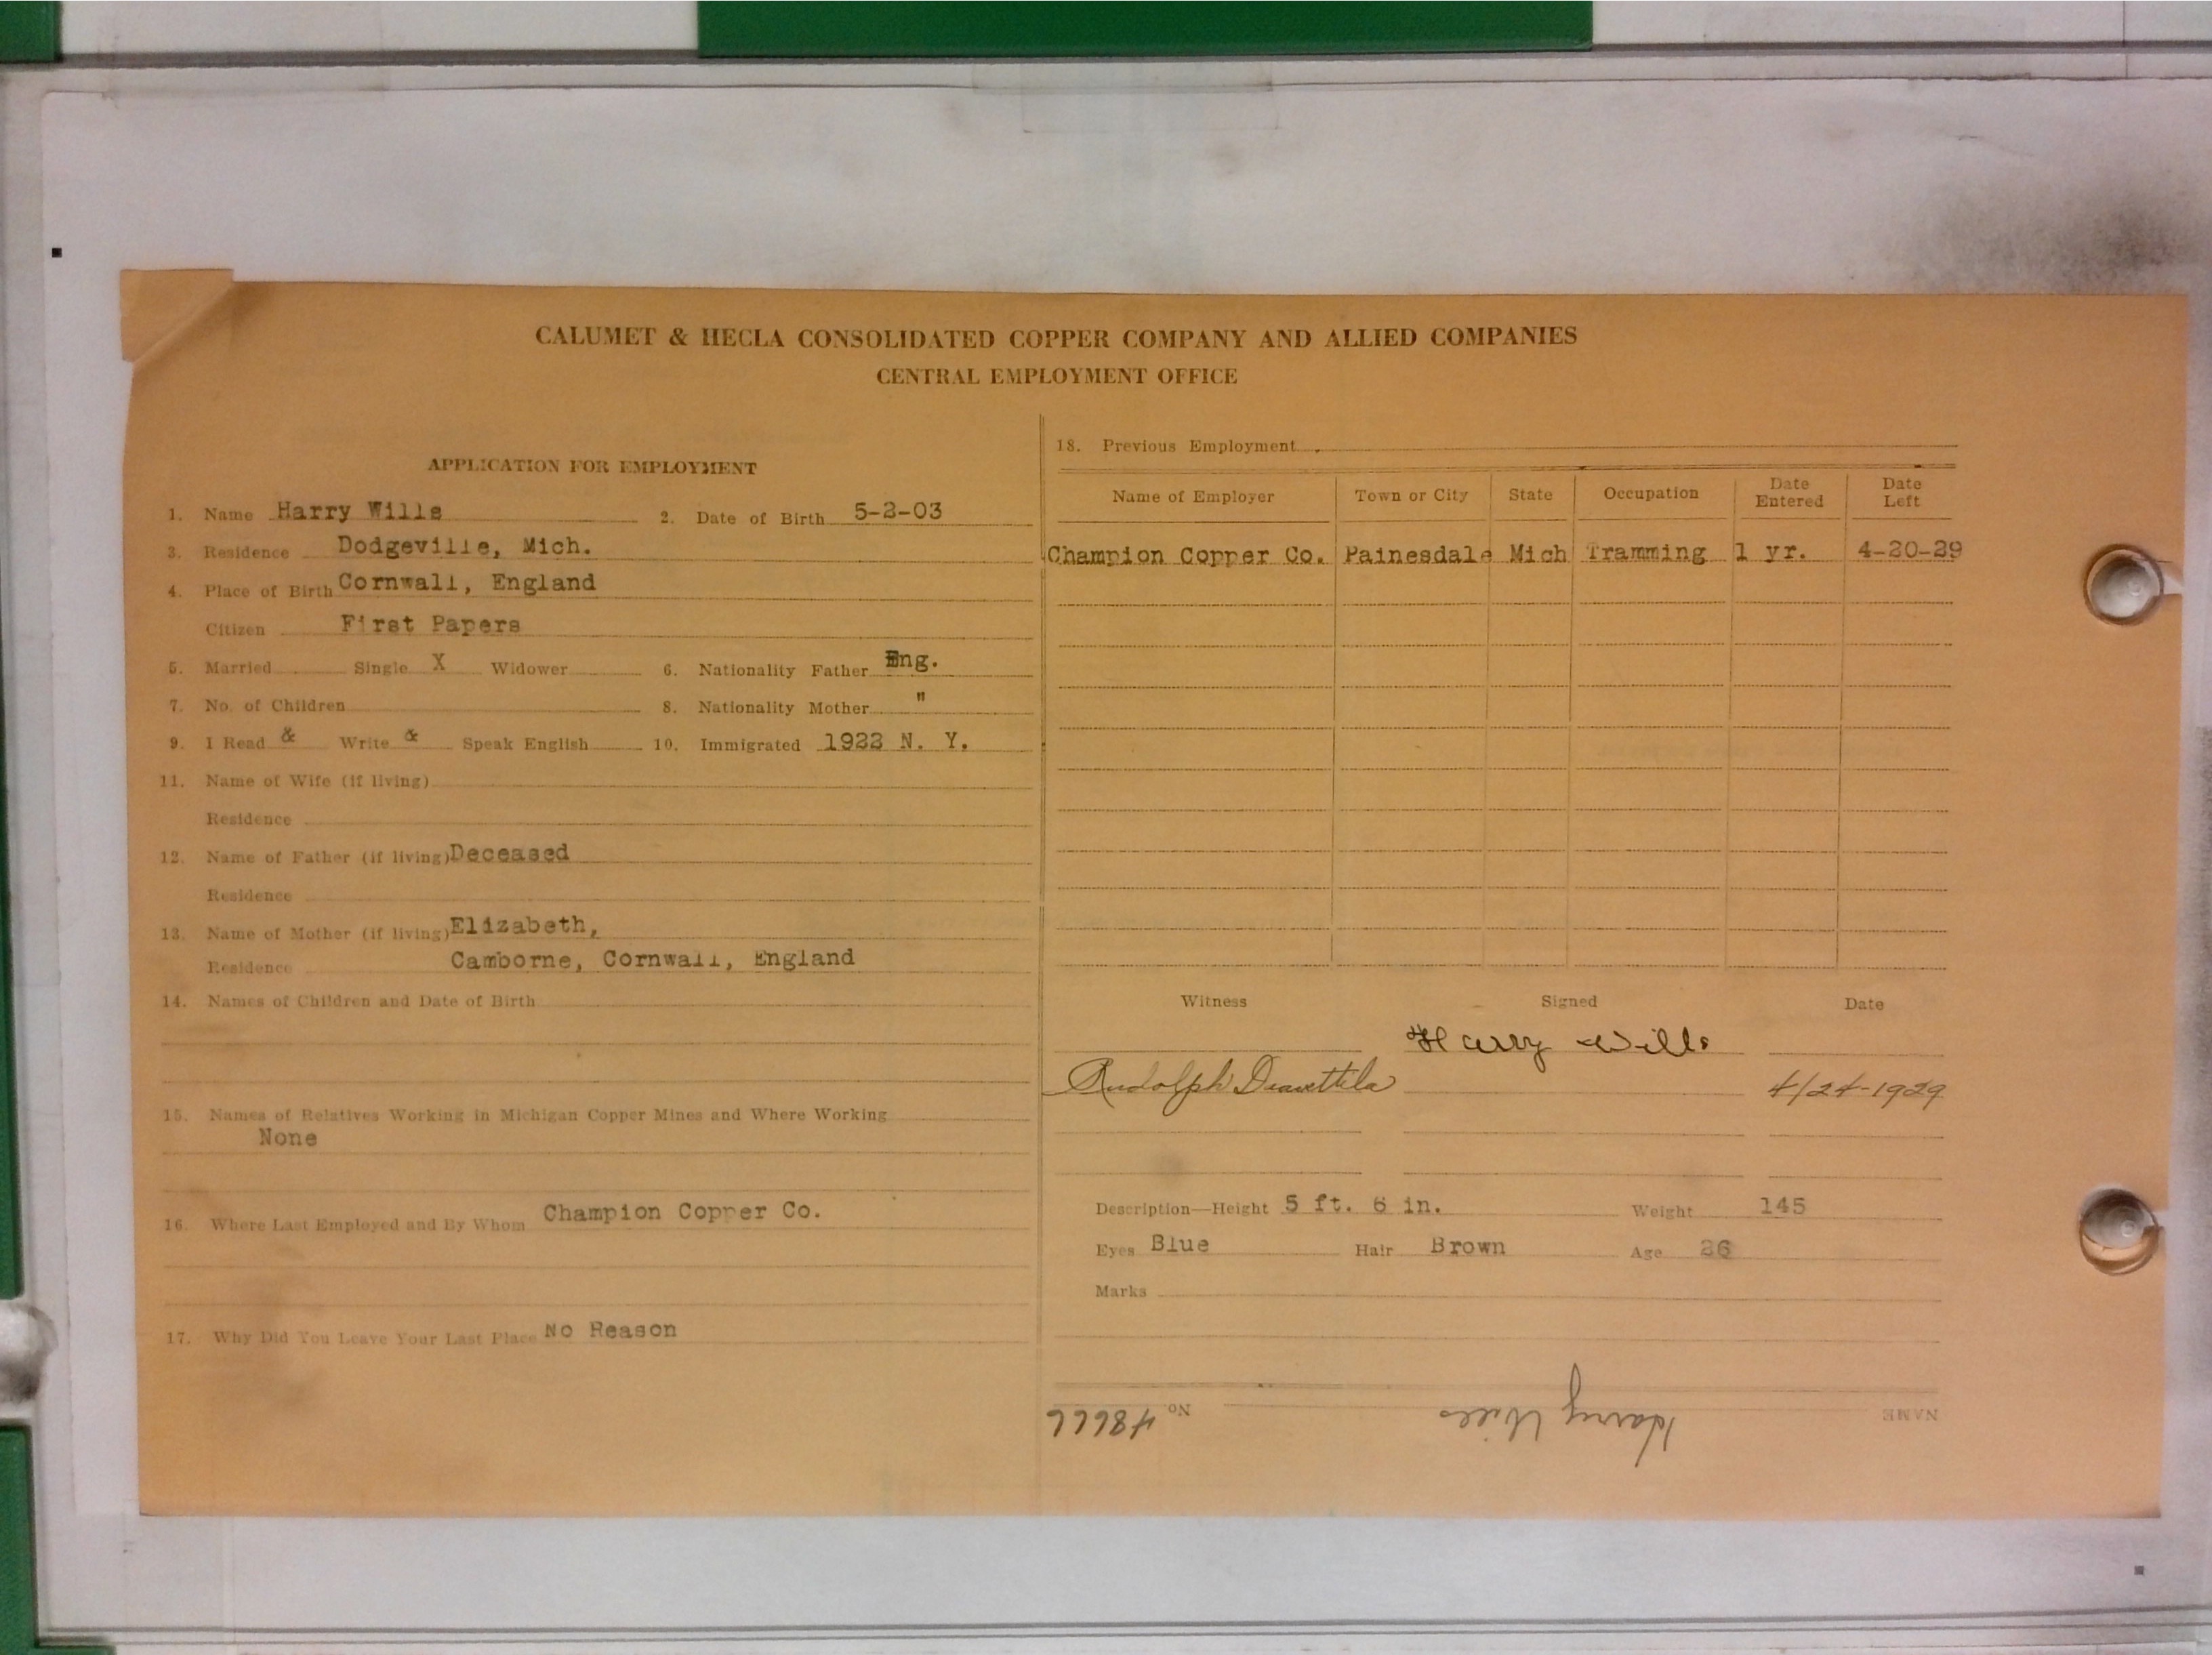 CALUMET & HECLA CONSOLIDATED COPPER COMPANY AND ALLIED COMPANIES
CENTRAL EMPLOYMENT OFFICE
APPLICATION FOR EMPLOYMENT
1. Name Harry Wills 2. Date of Birth 5-2-03
3. Residence Dodgeville, Mich.
4. Place of Birth Cornwall, England
Citizen First Papers
5. Married Single X Widower 6. Nationality Father Eng.
7. No. of Children 8. Nationality Mother "
9. I Read & Write & Speak English 10. Immigrated 1922 N. Y.
11. Name of Wife (if living)
Residence
12. Name of Father (if living) Deceased
Residence
13. Name of Mother (if living) Elizabeth,
Residence Camborne, Cornwall, England
14. Names of Children and Date of Birth
15. Names of Relatives Working in Michigan Copper Mines and Where Working
None
16. Where Last Employed and By Whom Champion Copper Co.
17. Why Did You Leave Your Last Place No Reason
18. Previous Employment
Name of Employer Town or City State Occupation Date Entered Date Left
Champion Copper Co. Painesdale Mich Tramming 1 yr. 4-20-29
Witness Signed Date
Harry Wills
Rudolph 4/24-1929
Description—Height 5 ft. 6 in. Weight 145
Eyes Blue Hair Brown Age 26
Marks
NAME Harry Wills No. 48666